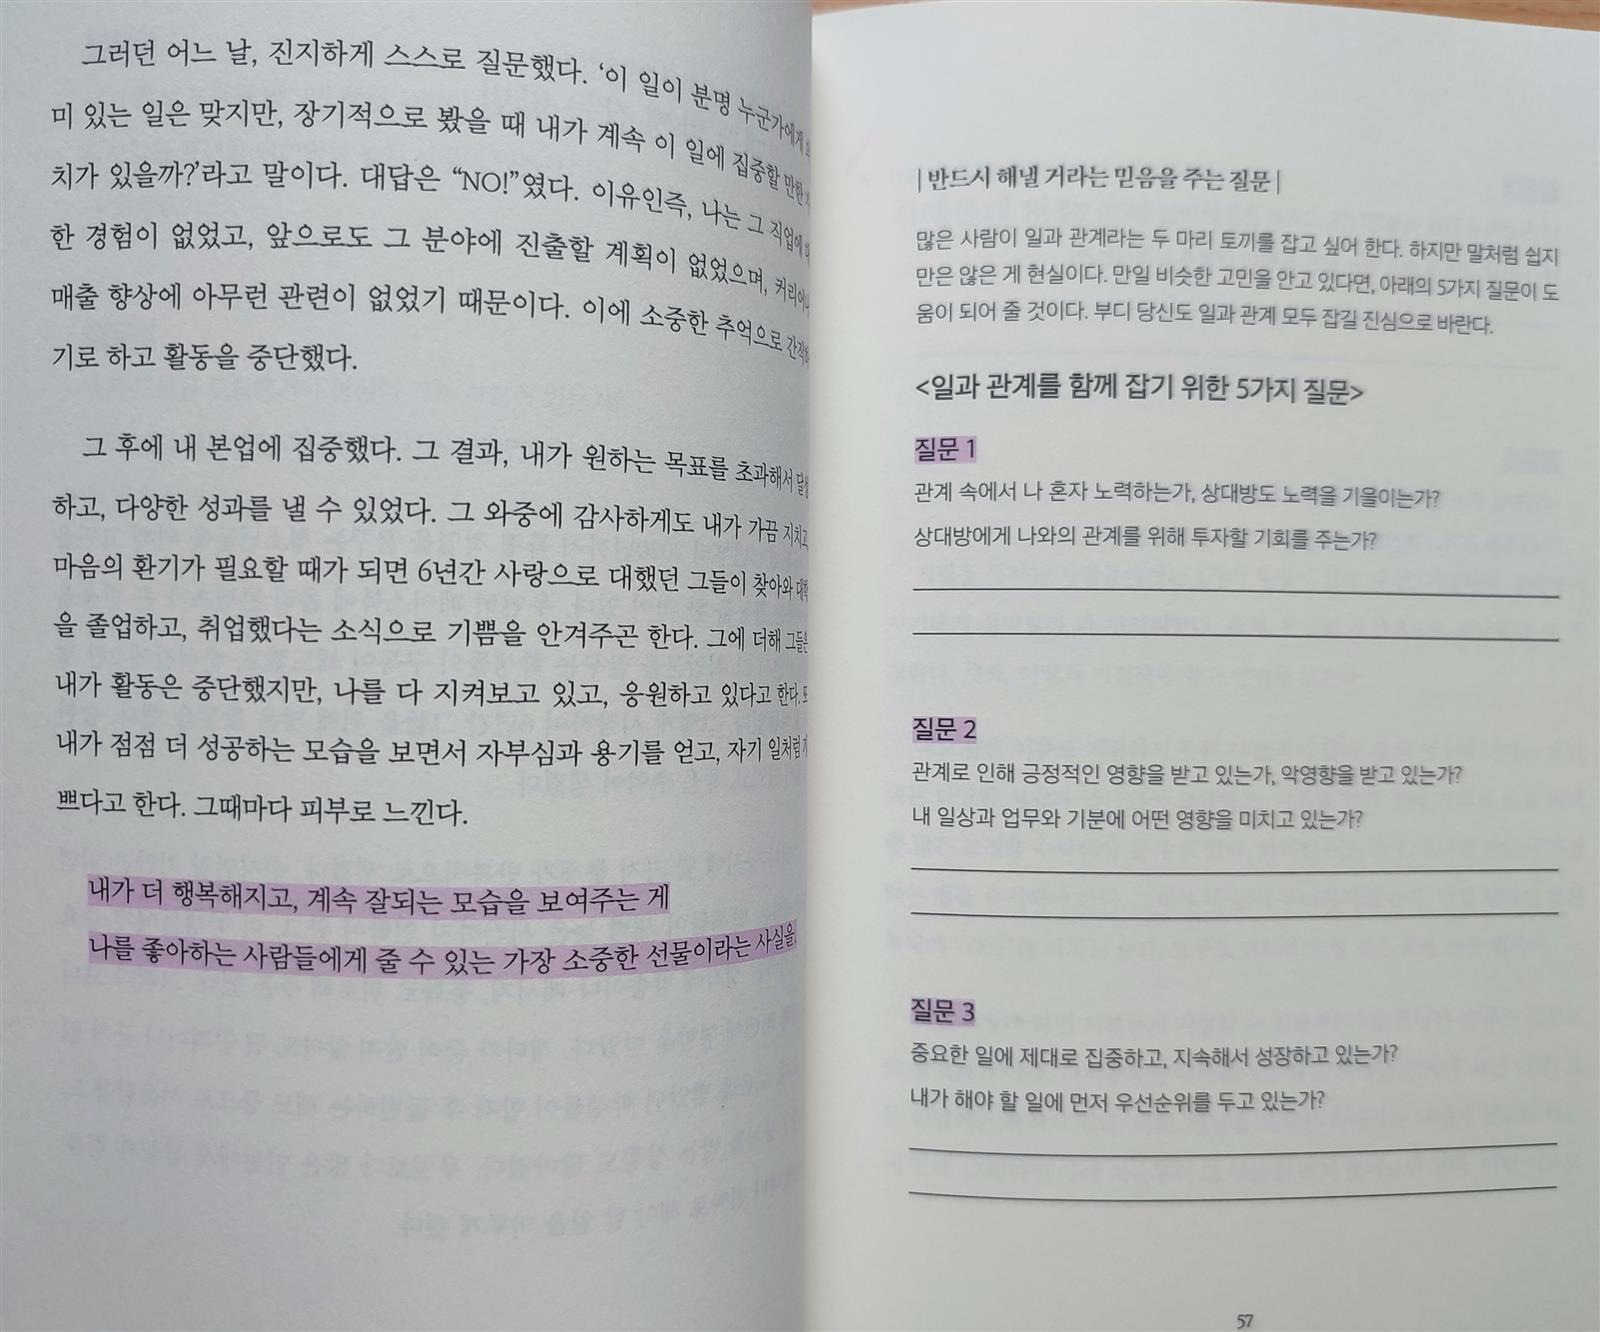 그러던 어느 날, 진지하게 스스로 질문했다. ‘이 일이 분명 누군가에게
미 있는 일은 맞지만, 장기적으로 봤을 때 내가 계속 이 일에 집중할 만한
치가 있을까?’라고 말이다. 대답은 “NO!”였다. 이유인즉, 나는 그 직업에
한 경험이 없었고, 앞으로도 그 분야에 진출할 계획이 없었으며, 커리어나
매출 향상에 아무런 관련이 없었기 때문이다. 이에 소중한 추억으로
기로 하고 활동을 중단했다.
그 후에 내 본업에 집중했다. 그 결과, 내가 원하는 목표를 초과해서
하고, 다양한 성과를 낼 수 있었다. 그 와중에 감사하게도 내가 가끔 지치고,
마음의 환기가 필요할 때가 되면 6년간 사랑으로 대했던 그들이 찾아와
을 졸업하고, 취업했다는 소식으로 기쁨을 안겨주곤 한다. 그에 더해 그들은
내가 활동은 중단했지만, 나를 다 지켜보고 있고, 응원하고 있다고 한다.
내가 점점 더 성공하는 모습을 보면서 자부심과 용기를 얻고, 자기 일처럼
쁘다고 한다. 그때마다 피부로 느낀다.
내가 더 행복해지고, 계속 잘되는 모습을 보여주는 게
나를 좋아하는 사람들에게 줄 수 있는 가장 소중한 선물이라는 사실을.
| 반드시 해낼 거라는 믿음을 주는 질문 |
많은 사람이 일과 관계라는 두 마리 토끼를 잡고 싶어 한다. 하지만 말처럼 쉽지
만은 않은 게 현실이다. 만일 비슷한 고민을 안고 있다면, 아래의 5가지 질문이 도
움이 되어 줄 것이다. 부디 당신도 일과 관계 모두 잡길 진심으로 바란다.
<일과 관계를 함께 잡기 위한 5가지 질문>
질문 1
관계 속에서 나 혼자 노력하는가, 상대방도 노력을 기울이는가?
상대방에게 나와의 관계를 위해 투자할 기회를 주는가?
질문 2
관계로 인해 긍정적인 영향을 받고 있는가, 악영향을 받고 있는가?
내 일상과 업무와 기분에 어떤 영향을 미치고 있는가?
질문 3
중요한 일에 제대로 집중하고, 지속해서 성장하고 있는가?
내가 해야 할 일에 먼저 우선순위를 두고 있는가?
57